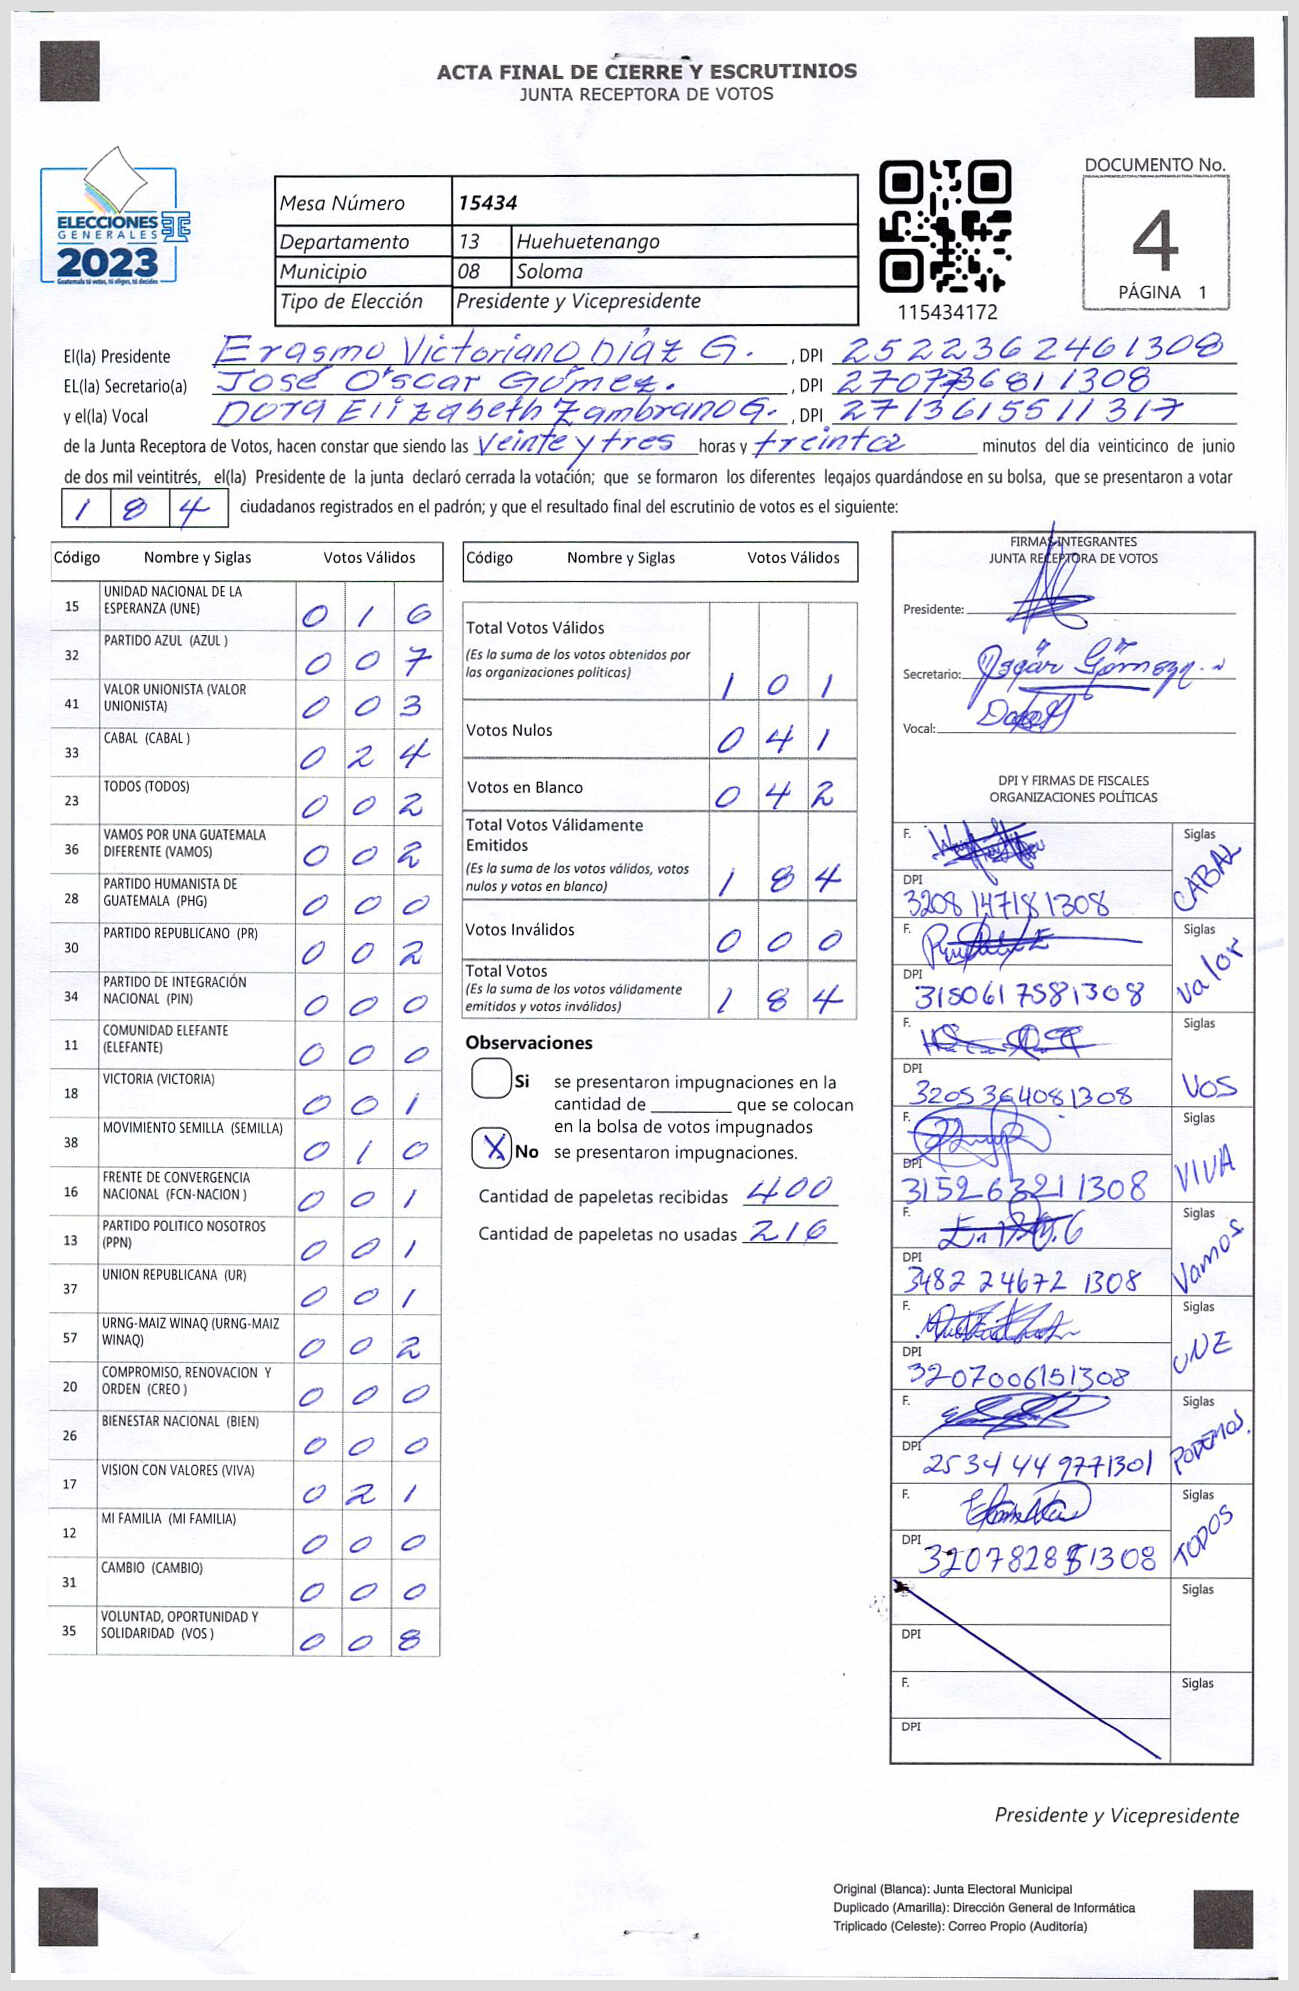 ACTA FINAL DE CIERRE Y ESCRUTINIOS
JUNTA RECEPTORA DE VOTOS
ELECCIONES
GENERALES
2023
Guatemala tú votas, tú eliges, tú decides
Mesa Número 15434
Departamento 13 Huehuetenango
Municipio 08 Soloma
Tipo de Elección Presidente y Vicepresidente
115434172
DOCUMENTO No.
4
PÁGINA 1
El(la) Presidente Erasmo Victoriano Díaz G. , DPI 2522362461308
EL(la) Secretario(a) José Oscar Gómez. , DPI 2707736811308
y el(la) Vocal Dora Elizabeth Zambrano G. , DPI 2713615511317
de la Junta Receptora de Votos, hacen constar que siendo las veinte y tres horas y treinta minutos del día veinticinco de junio
de dos mil veintitrés, el(la) Presidente de la junta declaró cerrada la votación; que se formaron los diferentes legajos guardándose en su bolsa, que se presentaron a votar
184 ciudadanos registrados en el padrón; y que el resultado final del escrutinio de votos es el siguiente:
Código Nombre y Siglas Votos Válidos
15 UNIDAD NACIONAL DE LA ESPERANZA (UNE) 016
32 PARTIDO AZUL (AZUL ) 007
41 VALOR UNIONISTA (VALOR UNIONISTA) 003
33 CABAL (CABAL ) 024
23 TODOS (TODOS) 002
36 VAMOS POR UNA GUATEMALA DIFERENTE (VAMOS) 002
28 PARTIDO HUMANISTA DE GUATEMALA (PHG) 000
30 PARTIDO REPUBLICANO (PR) 002
34 PARTIDO DE INTEGRACIÓN NACIONAL (PIN) 000
11 COMUNIDAD ELEFANTE (ELEFANTE) 000
18 VICTORIA (VICTORIA) 001
38 MOVIMIENTO SEMILLA (SEMILLA) 010
16 FRENTE DE CONVERGENCIA NACIONAL (FCN-NACION ) 001
13 PARTIDO POLITICO NOSOTROS (PPN) 001
37 UNION REPUBLICANA (UR) 001
57 URNG-MAIZ WINAQ (URNG-MAIZ WINAQ) 002
20 COMPROMISO, RENOVACION Y ORDEN (CREO ) 000
26 BIENESTAR NACIONAL (BIEN) 000
17 VISION CON VALORES (VIVA) 021
12 MI FAMILIA (MI FAMILIA) 000
31 CAMBIO (CAMBIO) 000
35 VOLUNTAD, OPORTUNIDAD Y SOLIDARIDAD (VOS ) 008
Código Nombre y Siglas Votos Válidos
Total Votos Válidos
(Es la suma de los votos obtenidos por
las organizaciones políticas) 101
Votos Nulos 041
Votos en Blanco 042
Total Votos Válidamente
Emitidos
(Es la suma de los votos válidos, votos
nulos y votos en blanco) 184
Votos Inválidos 000
Total Votos
(Es la suma de los votos válidamente
emitidos y votos inválidos) 184
Observaciones
Si se presentaron impugnaciones en la
cantidad de ________ que se colocan
en la bolsa de votos impugnados
X No se presentaron impugnaciones.
Cantidad de papeletas recibidas 400
Cantidad de papeletas no usadas 216
FIRMAS INTEGRANTES
JUNTA RECEPTORA DE VOTOS
Presidente:
Secretario: Oscar Gómez
Vocal:
DPI Y FIRMAS DE FISCALES
ORGANIZACIONES POLÍTICAS
F. Siglas
DPI 3208147181308 CABAL
F. Siglas
DPI 3150617581308 Valor
F. Siglas
DPI 3205364081308 VOS
F. Siglas
DPI 3152632211308 VIVA
F. Siglas
DPI 3482 24672 1308 Vamos
F. Siglas
DPI 3207006151308 UNE
F. Siglas
DPI 2534449771301 PODEMOS.
F. Siglas
DPI TODOS
F. Siglas
DPI
F. Siglas
DPI
Presidente y Vicepresidente
Original (Blanca): Junta Electoral Municipal
Duplicado (Amarilla): Dirección General de Informática
Triplicado (Celeste): Correo Propio (Auditoría)